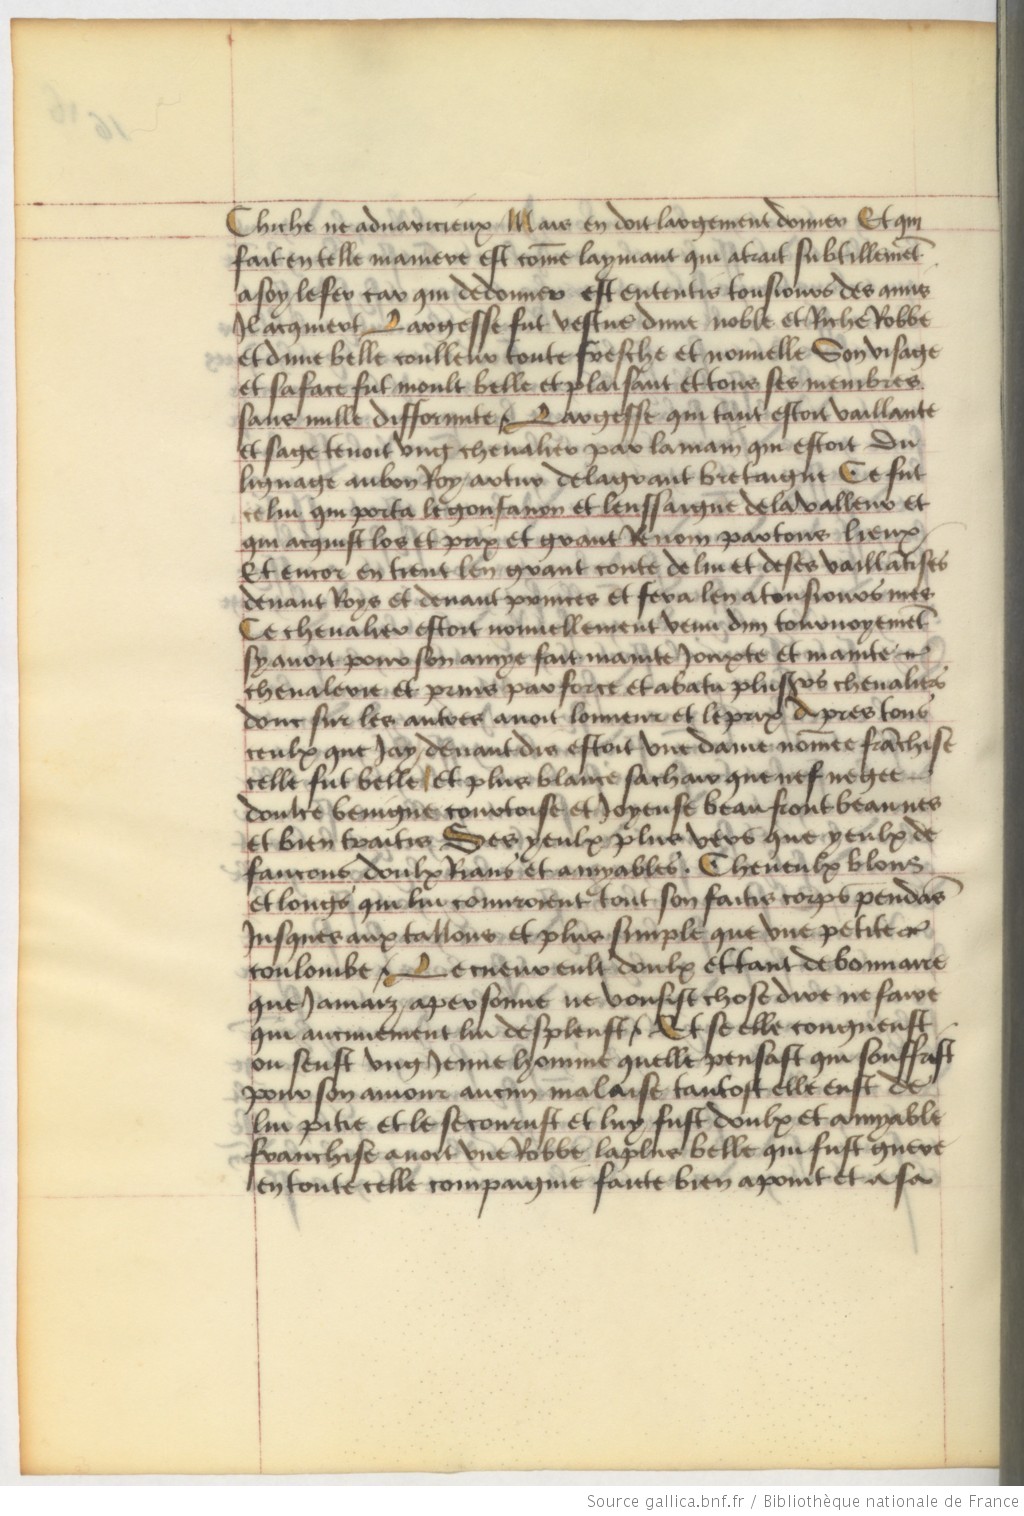 Chiche ne aduaricieux Mais en doit largement donner Et qui
fait en telle maniere est com̄e laymant qui atrait subtillemēt
a soy le fer car qui de donner est ententis tousiours des amis
Il acquiert Largesse fut vestue dune noble et Riche Robbe
et dune belle coulleur toute fresche et nouuelle Son visage
et sa face fut moult belle et plaisant et tous ses membres
sans nulle difformite Largesse qui tant estoit vaillante
et sage tenoit vng cheualier par la main qui estoit du
lignage au bon Roy artur de la grant bretaigne Ce fut
celui qui porta le gonfanon et lenssaigne de la valleur et
qui acquist los et prix et grant Renom par tous lieux
Et encor en tient len grant conte de lui et de ses vaillātises
deuant Roys et deuant princes et fera len a tousiours mes
Ce cheualier estoit nouuellement venu dun tournoyemēt
sy auoit pour son amye fait mainte Jouxte et mainte
cheualerie et prins par force et abatu plus̄rs cheualiers
donc sur les autres auoit lonneur et le prix Apres tous
ceulx que Jay deuant dis estoit vne dame nom̄ee frāchise
celle fut belle et plus blance sachiez que nef negee
doulce benigne courtoise et Joyeuse beau front beau nes
et bien traitis Ses yeulx plus vers que yeulx de
faucons doulx Rians et amyables. Cheueulx blons
et longs qui lui couuroient tout son faitis corps pendās
Jusques aux tallons et plus simple que vne petite
coulombe Le cueur eult doulx et tant debonnaire
que Jamaiz a personne ne voulsist chose dire ne faire
qui aucunement lui despleust Et se elle congneust
ou sceust vng Jenne homme quelle pensast qui souffrist
pour son amour aucun malaise tantost elle eust de
lui pitie et le secourust et luy fust doulx et amyable
franchise auoit vne Robbe la plus belle qui fust guere
en toute celle compaignie faite bien a point et a sa
Source gallica.bnf.fr / Bibliothèque nationale de France